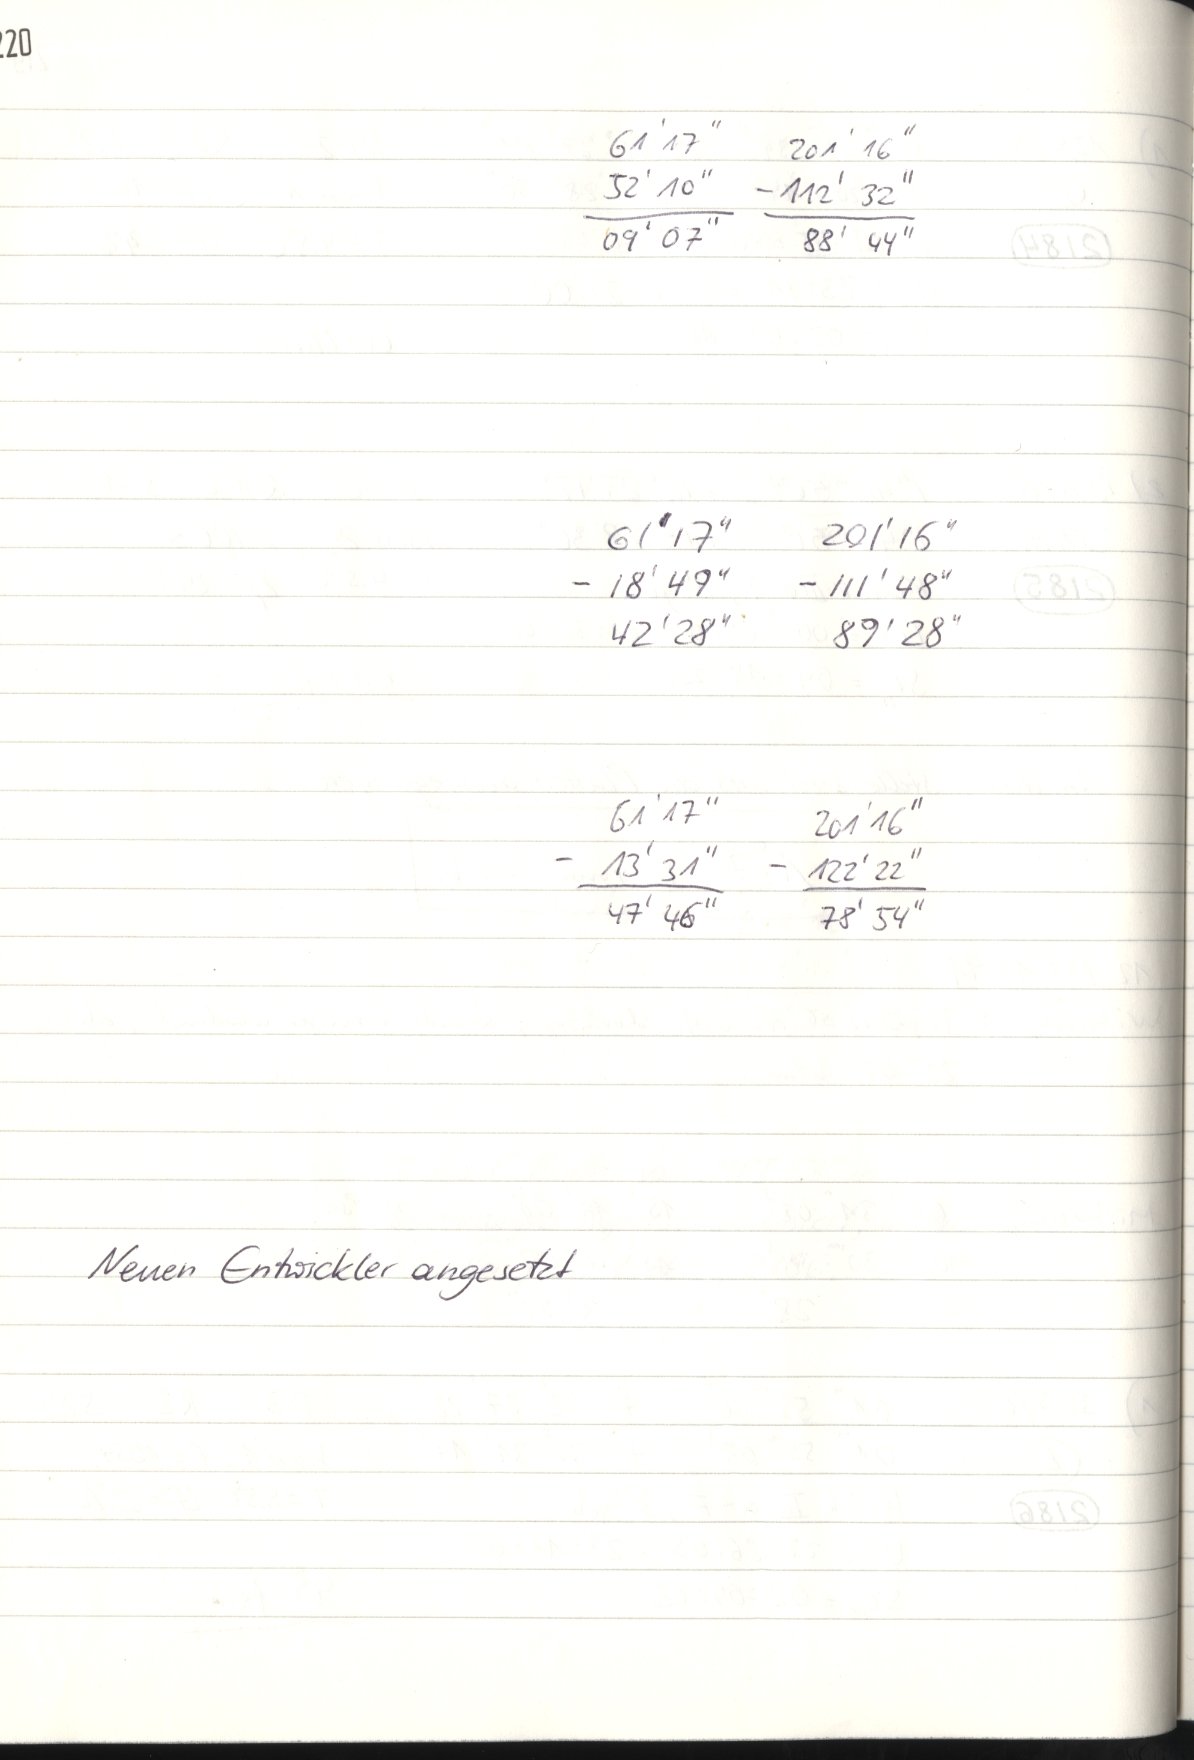 220
61' 17" 201' 16"
52' 10" - 112' 32"
09' 07" 88' 44"
61' 17" 201' 16"
- 18' 49" - 111' 48"
42' 28" 89' 28"
61' 17" 201' 16"
- 13' 31" - 122' 22"
47' 46" 78' 54"
Neuen Entwickler angesetzt